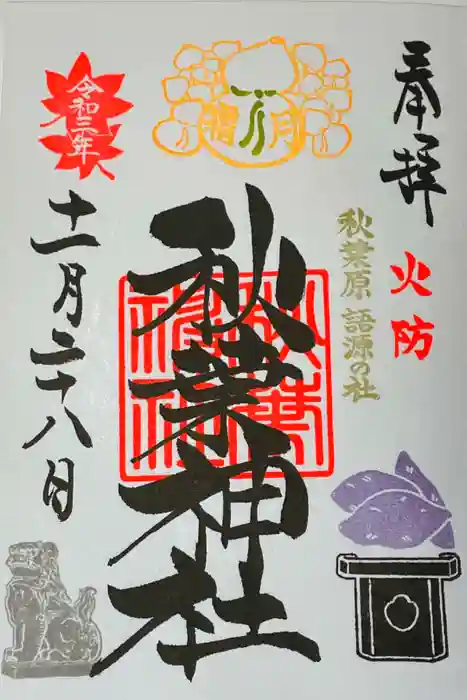 奉拝
火防
秋葉原 語源の社
霜月
秋葉神社
秋葉神社
令和三年
十一月二十八日